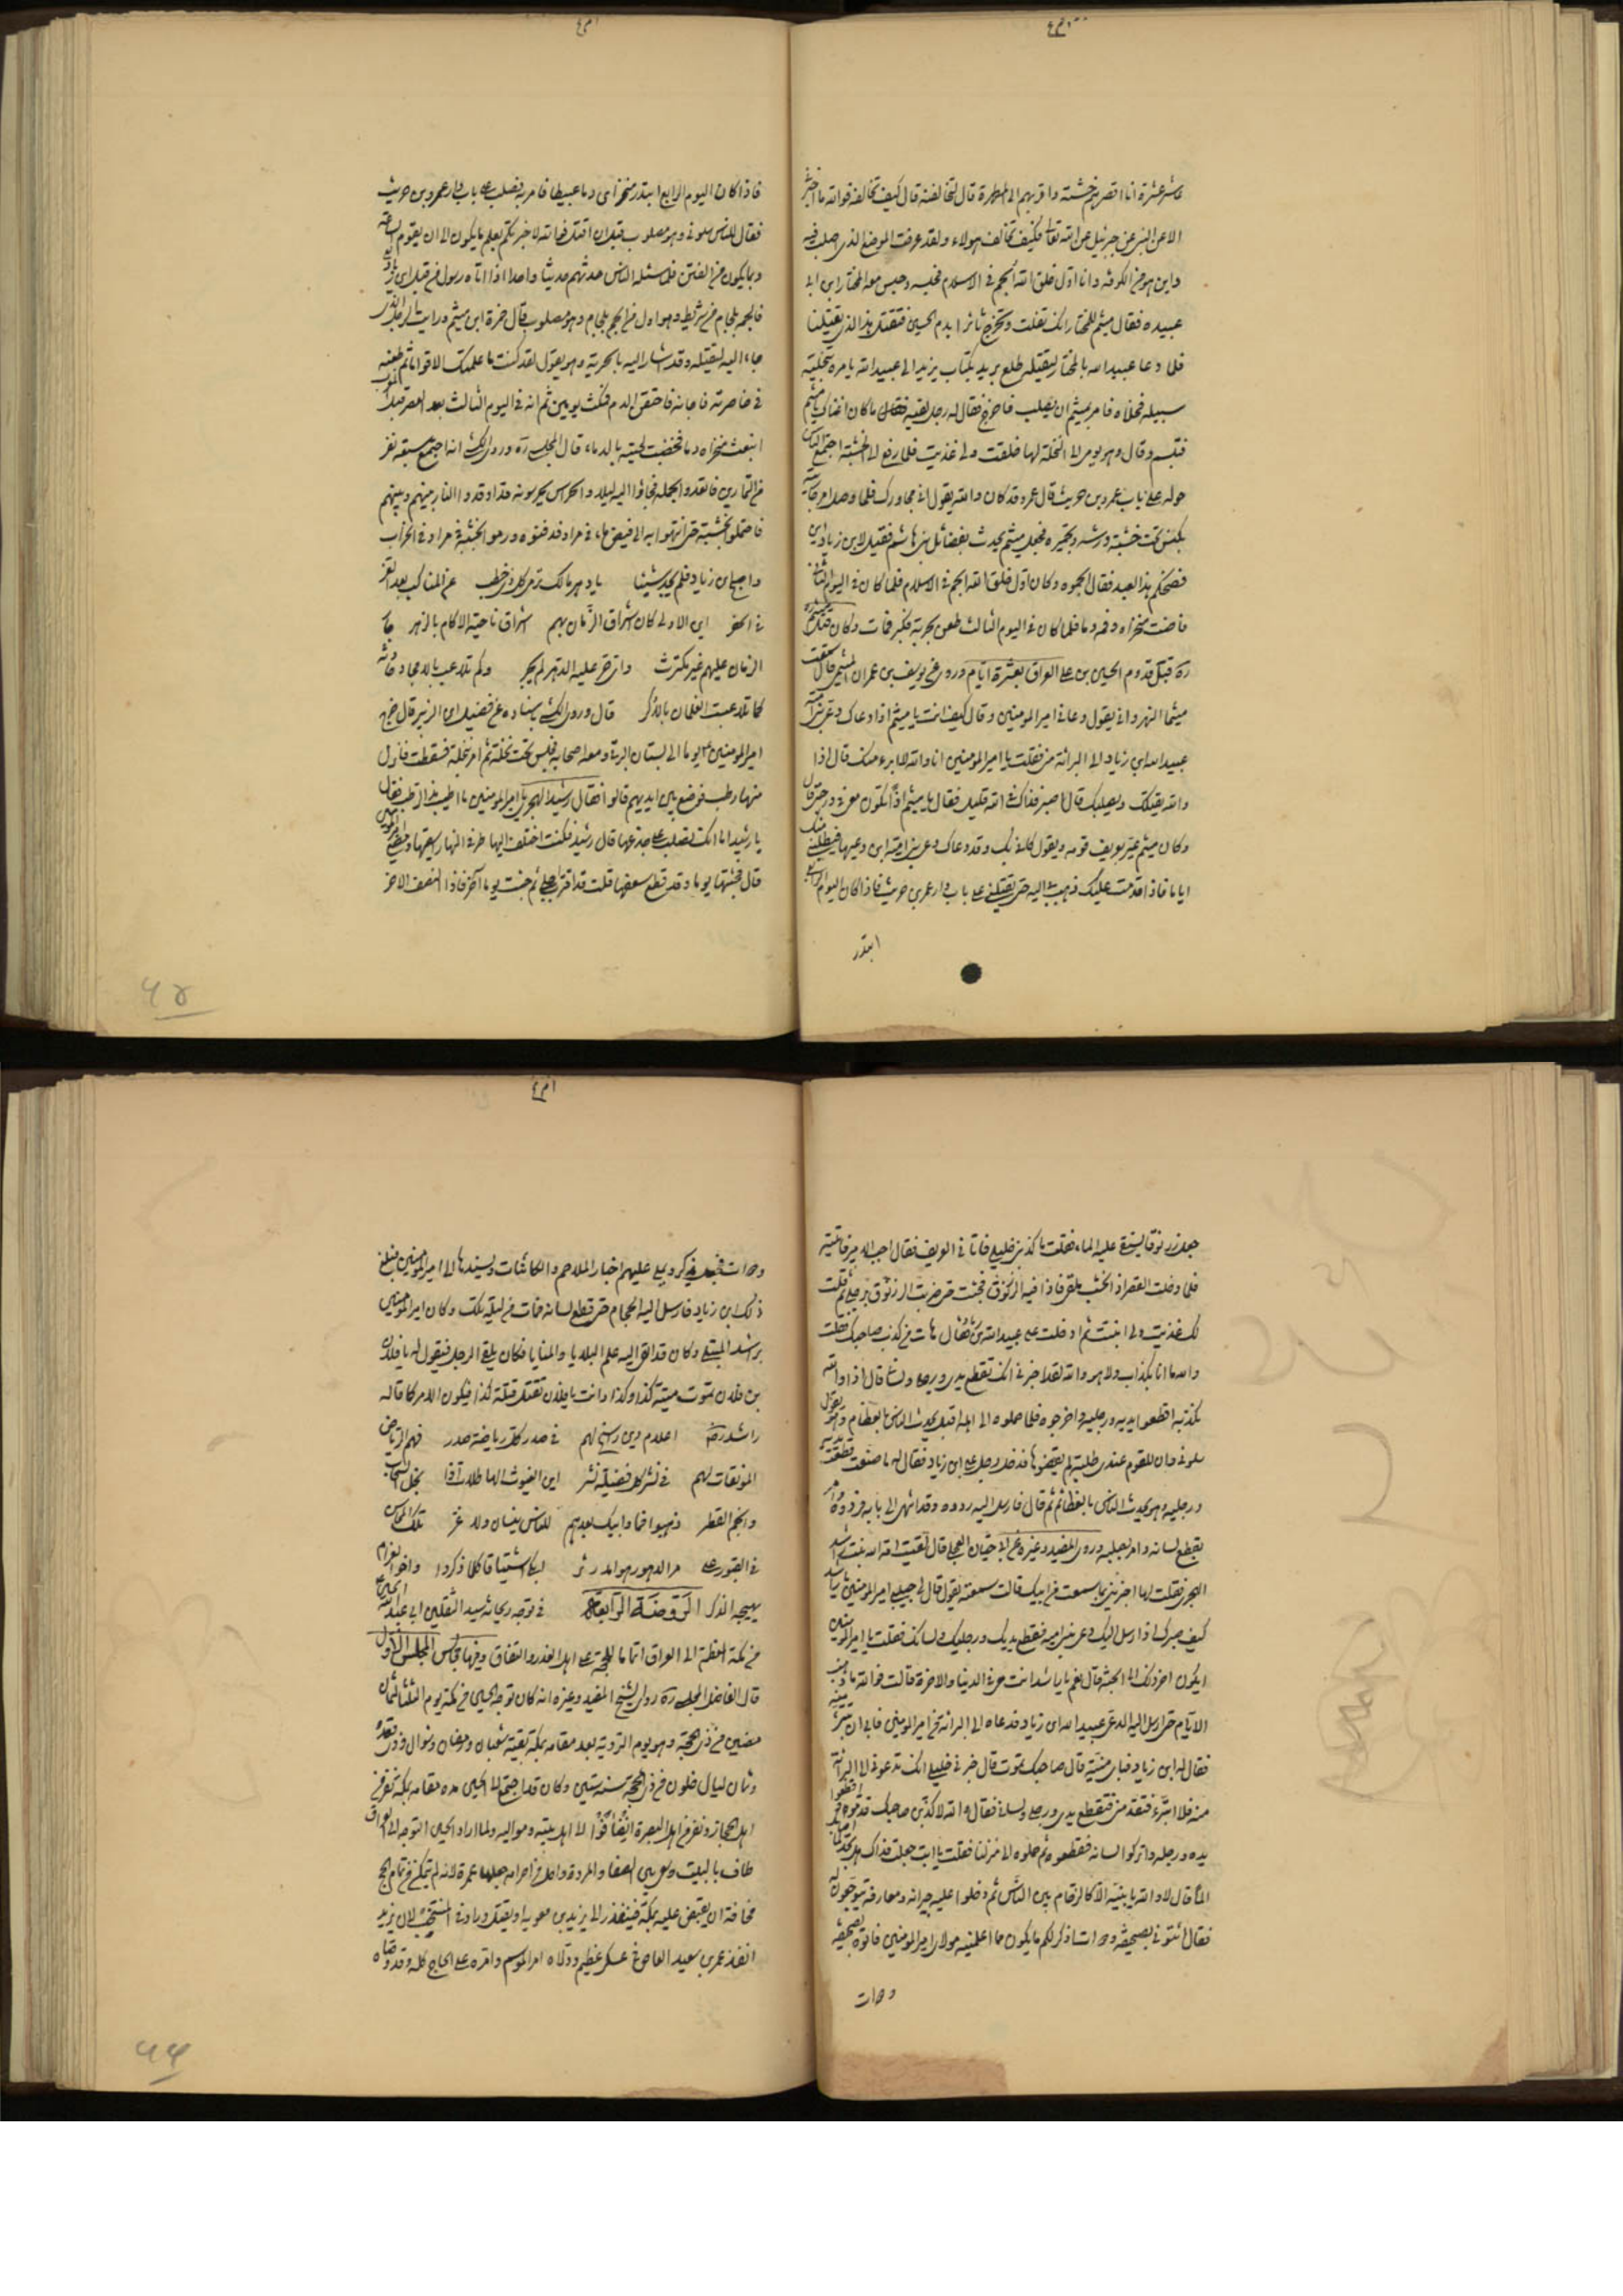 عاشر عشرة انا اقصرهم خشبة واقربهم الى المطهرة قال لنخالفنه قال كيف تخالفه فوالله ما اخبر
الا عن النبي عن جبرئيل عن الله تعالى فكيف تخالف هؤلاء ولقد عرفت الموضع الذي اصلب فيه
واين هو من الكوفة وانا اول خلق الله الجم في الاسلام فحبسه وحبس معه المختار ابن ابي
عبيدة فقال ميثم للمختار انك تفلت وتخرج ثائرا بدم الحسين فتقتل هذا الذي يقتلنا
فلما دعا عبيد الله بالمختار ليقتله طلع بريد بكتاب يزيد الى عبيد الله يامره بتخلية
سبيله فخلاه وامر بميثم ان يصلب فاخرج فقال له رجل لقيه ما كان اغناك يا ميثم
فتبسم وقال وهو يومي الى النخلة لها خلقت ولي غذيت فلما رفع الى الخشبة اجتمع الناس
حوله على باب عمرو بن حريث قال عمرو قد كان والله يقول اني مجاورك فلما صلب امر جاريته
بكنس تحت خشبته ورشه وتجميره فجعل ميثم يحدث بفضائل بني هاشم فقيل لابن زياد
فضحكم هذا العبد فقال الجموه وكان اول خلق الله الجم في الاسلام فلما كان في اليوم الثاني
فاضت منخراه وفمه دما فلما كان في اليوم الثالث طعن بحربة فكبر فمات وكان قتل ميثم
ره قبل قدوم الحسين بن علي العراق بعشرة ايام وروي عن يوسف بن عمران الميثمي قال سمعت
ميثما النهرواني يقول دعاني امير المؤمنين وقال كيف انت يا ميثم اذا دعاك دعي بني امية
عبيد الله بن زياد الى البرائة مني فقلت يا امير المؤمنين انا والله لا ابرء منك قال اذا
والله يقتلك ويصلبك قال اصبر فذاك في الله قليل فقال يا ميثم اذا تكون معي في درجتي قال
وكان ميثم يمر بعريف قومه ويقول كاني بك وقد دعاك دعي بني امية ابن دعيها فيطلبني منك
اياما فاذا قدمت عليك ذهبت بي اليه حتى يقتلني على باب دار عمرو بن حريث فاذا كان اليوم الرابع
ابتدر
فاذا كان اليوم الرابع ابتدر منخراي دما عبيطا فامر به فصلب على باب دار عمرو بن حريث
فقال للناس سلوني وهو مصلوب قبل ان اقتل فوالله لاخبرنكم بعلم ما يكون الى ان تقوم الساعة
وما يكون من الفتن فلما سئله الناس حدثهم حديثا واحدا اذا اتاه رسول من قبل ابن زياد
فالجمه بلجام من شريط وهو اول من الجم بلجام وهو مصلوب قال حمزة ابن ميثم ورايت الرجل الذي
جاء اليه ليقتله وقد اشار اليه بالحربة وهو يقول لقد كنت ما علمتك الا قواما ثم طعنه
في خاصرته فاجافه فاحتقن الدم فمكث يومين ثم انه في اليوم الثالث بعد العصر قبل المغرب
انبعث منخراه دما فخضبت لحيته بالدماء قال المجلسي ره وروى الكشي انه اجتمع سبعة نفر
من التمارين فاتعدوا لحمله فجاؤا اليه ليلا والحراس يحرسونه وقد اوقدوا النار بينهم وبينهم
فاحتملوه بخشبته حتى انتهوا به الى فيض ماء في مراد فدفنوه ورموا الخشبة في مراد في الخراب
واصبح ابن زياد فلم يجد شيئا يا دهر مالك ترمي كل ذي خطب عن المناكب بعد العز
في الحفر اين الاولى كان اشراق الزمان بهم اشراق ناحية الاكام بالزهر جار
الزمان عليهم غير مكترث واي حر عليه الدهر لم يجر وكم تلاعب بالامجاد حادثه
كما تلاعبت الغلمان بالاكر قال وروى الكشي باسناده عن فضيل ابن الزبير قال خرج
امير المؤمنين يوما الى بستان البرني ومعه اصحابه فجلس تحت نخلة ثم امر بنخلة فلقطت فانزل
منها رطب فوضع بين ايديهم قالوا فقال رشيد الهجري يا امير المؤمنين ما اطيب هذا الرطب فقال
يا رشيد اما انك تصلب على جذعها قال رشيد فكنت اختلف اليها طرفي النهار اسقيها ومضى امير المؤمنين
قال فجئتها يوما وقد قطع سعفها قلت قد اقترب اجلي ثم جئت يوما آخر فاذا النصف الاخر
جعل زرنوقا يستقى عليه الماء فقلت ما كذبني خليلي فاتاني العريف فقال اجب الامير فاتيته
فلما دخلت القصر اذا الخشب ملقى فاذا فيه الزرنوق فجئت حتى ضربت الزرنوق برجلي ثم قلت
لك غذيت ولي انبت ثم ادخلت على عبيد الله بن زياد فقال هات من كذب صاحبك فقلت
والله ما انا بكذاب ولا هو والله لقد اخبرني انك تقطع يدي ورجلي ولساني قال اذا والله
نكذبه اقطعوا يديه ورجليه واخرجوه فلما حملوه الى اهله اقبل يحدث الناس بالعظائم وهو يقول
سلوني وان للقوم عندي طلبة لم يقضوها فدخل رجل على ابن زياد فقال له ما صنعت قطعت يديه
ورجليه وهو يحدث الناس بالعظائم ثم قال فارسل اليه ردوه وقد انتهى الى بابه فردوه وامر
بقطع لسانه وامر بصلبه وروى المفيد وغيره عن ابي حيان العجلي قال لقيت امة الله بنت راشد
الهجري فقلت لها اخبريني بما سمعت من ابيك قالت سمعته يقول قال لي حبيبي امير المؤمنين يا راشد
كيف صبرك اذا ارسل اليك دعي بني امية فقطع يديك ورجليك ولسانك فقلت يا امير المؤمنين
ايكون اخر ذلك الى الجنة قال نعم يا راشد انت معي في الدنيا والاخرة قالت فوالله ما ذهبت
الايام حتى ارسل اليه الدعي عبيد الله ابن زياد فدعاه الى البرائة من امير المؤمنين فابى ان يتبرء منه
فقال له ابن زياد فباي ميتة قال صاحبك تموت قال خبرني خليلي انك تدعوني الى البرائة
منه فلا اتبرء فتقدمني فتقطع يدي ورجلي ولساني فقال والله لاكذبن صاحبك قدموه فاقطعوا
يده ورجله واتركوا لسانه فقطعوه ثم حملوه الى منزلنا فقلت يا ابت جعلت فداك هل تجد لما اصابك
الما قال لا والله يا بنية الا كالزحام بين الناس ثم دخلوا عليه جيرانه ومعارفه يتوجعون له
فقال ائتوني بصحيفة ودوات اذكر لكم ما يكون مما اعلمنيه مولاي امير المؤمنين فاتوه بصحيفة
ودوات
ودوات فجعل يذكر ويملي عليهم اخبار الملاحم والكائنات ويسندها الى امير المؤمنين فبلغ
ذلك ابن زياد فارسل اليه الحجام حتى قطع لسانه فمات من ليلته تلك وكان امير المؤمنين
يسميه راشد المبتلى وكان قد القى اليه علم البلايا والمنايا فكان يلقى الرجل فيقول له يا فلان
بن فلان تموت ميتة كذا وكذا وانت يا فلان تقتل قتلة كذا فيكون الامر كما قاله
راشد ره اعلام دين رسخ لهم في صدر كل رياضة صدر فهم الرياض
المونقات لهم في نشر كل فضيلة نشر اين الغيوث الهاطلات اذا بخل السحاب
وانجم القطر ذهبوا فما وابيك بعدهم للناس نيسان ولا غر تلك المحاسن
في القبور على مر الدهور هوامد دثر ابكي اشتياقا كلما ذكروا واخو الغرام
يهيجه الذكر الروضة الرابعة في توجه ريحانة سيد الثقلين ابي عبد الله الحسين
من مكة المعظمة الى العراق اتماما للحجة على اهل الغدر والنفاق وفيها مجالس المجلس الاول
قال الفاضل المجلسي ره روى الشيخ المفيد وغيره انه كان توجه الحسين من مكة يوم الثلثا لثمان
مضين من ذي الحجة وهو يوم التروية بعد مقامه بمكة بقية شعبان ورمضان وشوال وذي القعدة
وثمان ليال خلون من ذي الحجة سنة ستين وكان قد اجتمع الى الحسين مدة مقامه بمكة نفر من
اهل الحجاز ونفر من اهل البصرة انضافوا الى اهل بيته ومواليه ولما اراد الحسين التوجه الى العراق
طاف بالبيت وسعى بين الصفا والمروة واحل من احرامه وجعلها عمرة لانه لم يتمكن من تمام الحج
مخافة ان يقبض عليه بمكة فينفذ الى يزيد بن معوية او يقتل وروى في المنتخب لان يزيد
انفذ عمرو بن سعيد العاص في عسكر عظيم وولاه امر الموسم وامره على الحاج كله وقد وصاه